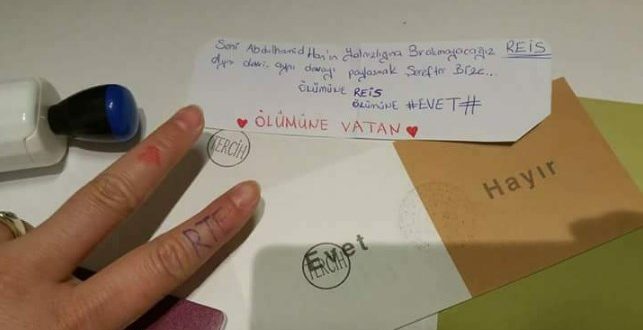 Seni Abdülhamid Han'ın Yalnızlığına Bırakmayacağız REİS
Aynı davayı paylaşmak Şereftir Bize...
ÖLÜMÜNE REİS
ÖLÜMÜNE #EVET#
♥ ÖLÜMÜNE VATAN ♥
TERCİH
RTE
Evet
TERCİH
Hayır